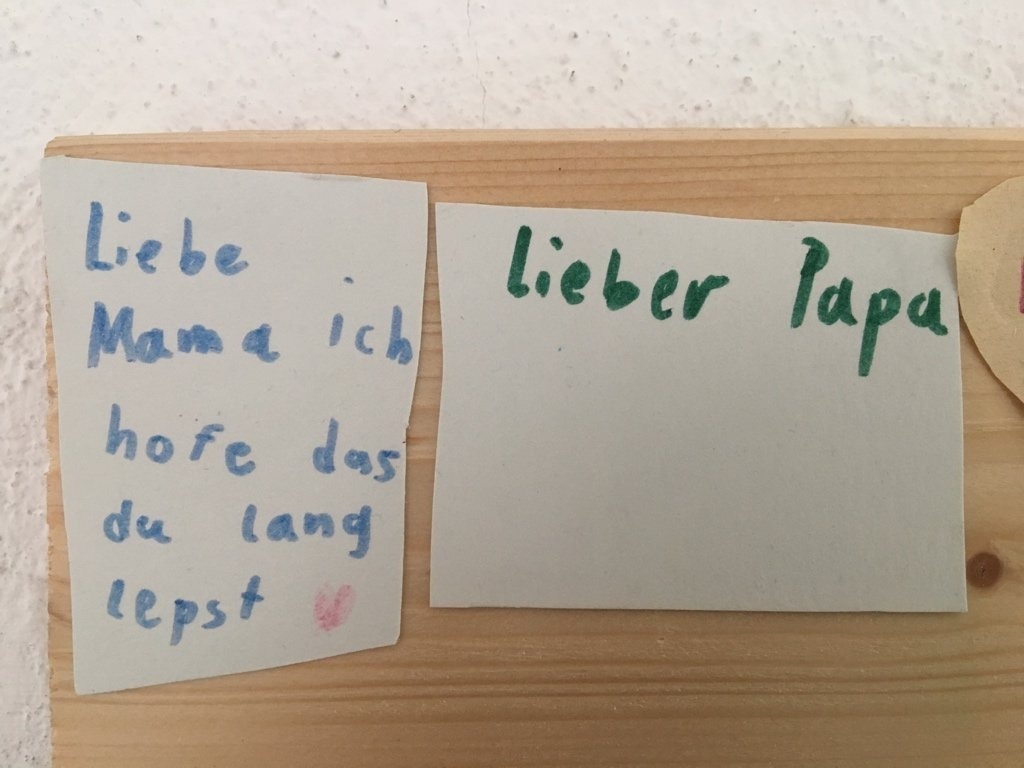 Liebe
Mama ich
hofe das
du lang
lepst
lieber Papa